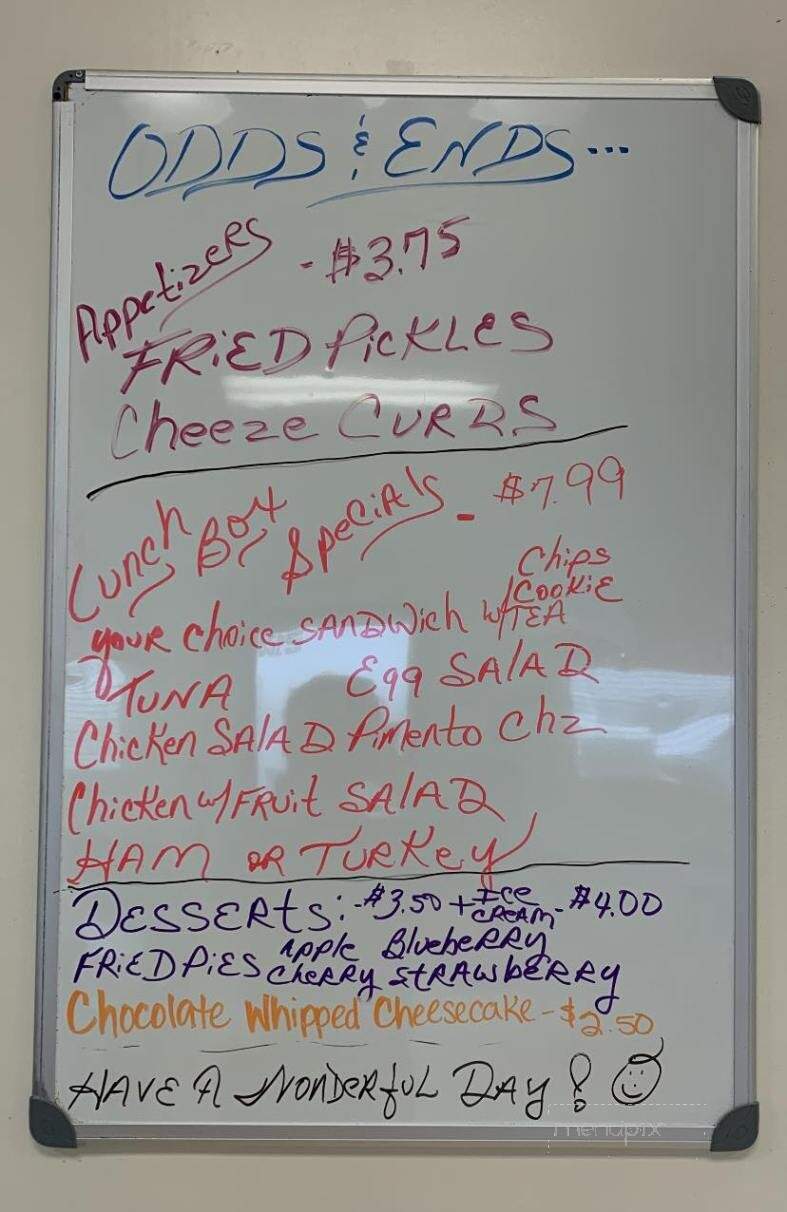 ODDS & ENDS...
Appetizers - $3.75
FRIED PICKLES
Cheeze CURDS
Lunch Box Specials - $7.99
Chips
Cookie
your choice SANDWich w/TEA
TUNA Egg SALAD
Chicken SALAD Pimento Chz
Chicken w/FRUit SALAD
HAM OR TURKey
DESSERts: -$3.50 + ICE CREAM - $4.00
FRiED PiES Apple Blueberry
Cherry STRAWberry
Chocolate Whipped Cheesecake - $2.50
HAVE A WONDERfUL DAY!
menupix